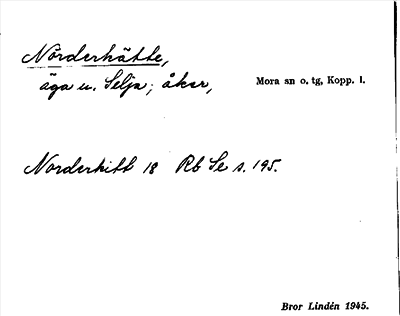 Norderhätte,
äga u. Selja; åker,
Mora sn o. tg, Kopp. l.
Norderhitt 18 Rb Se s. 195.
Bror Lindén 1945.